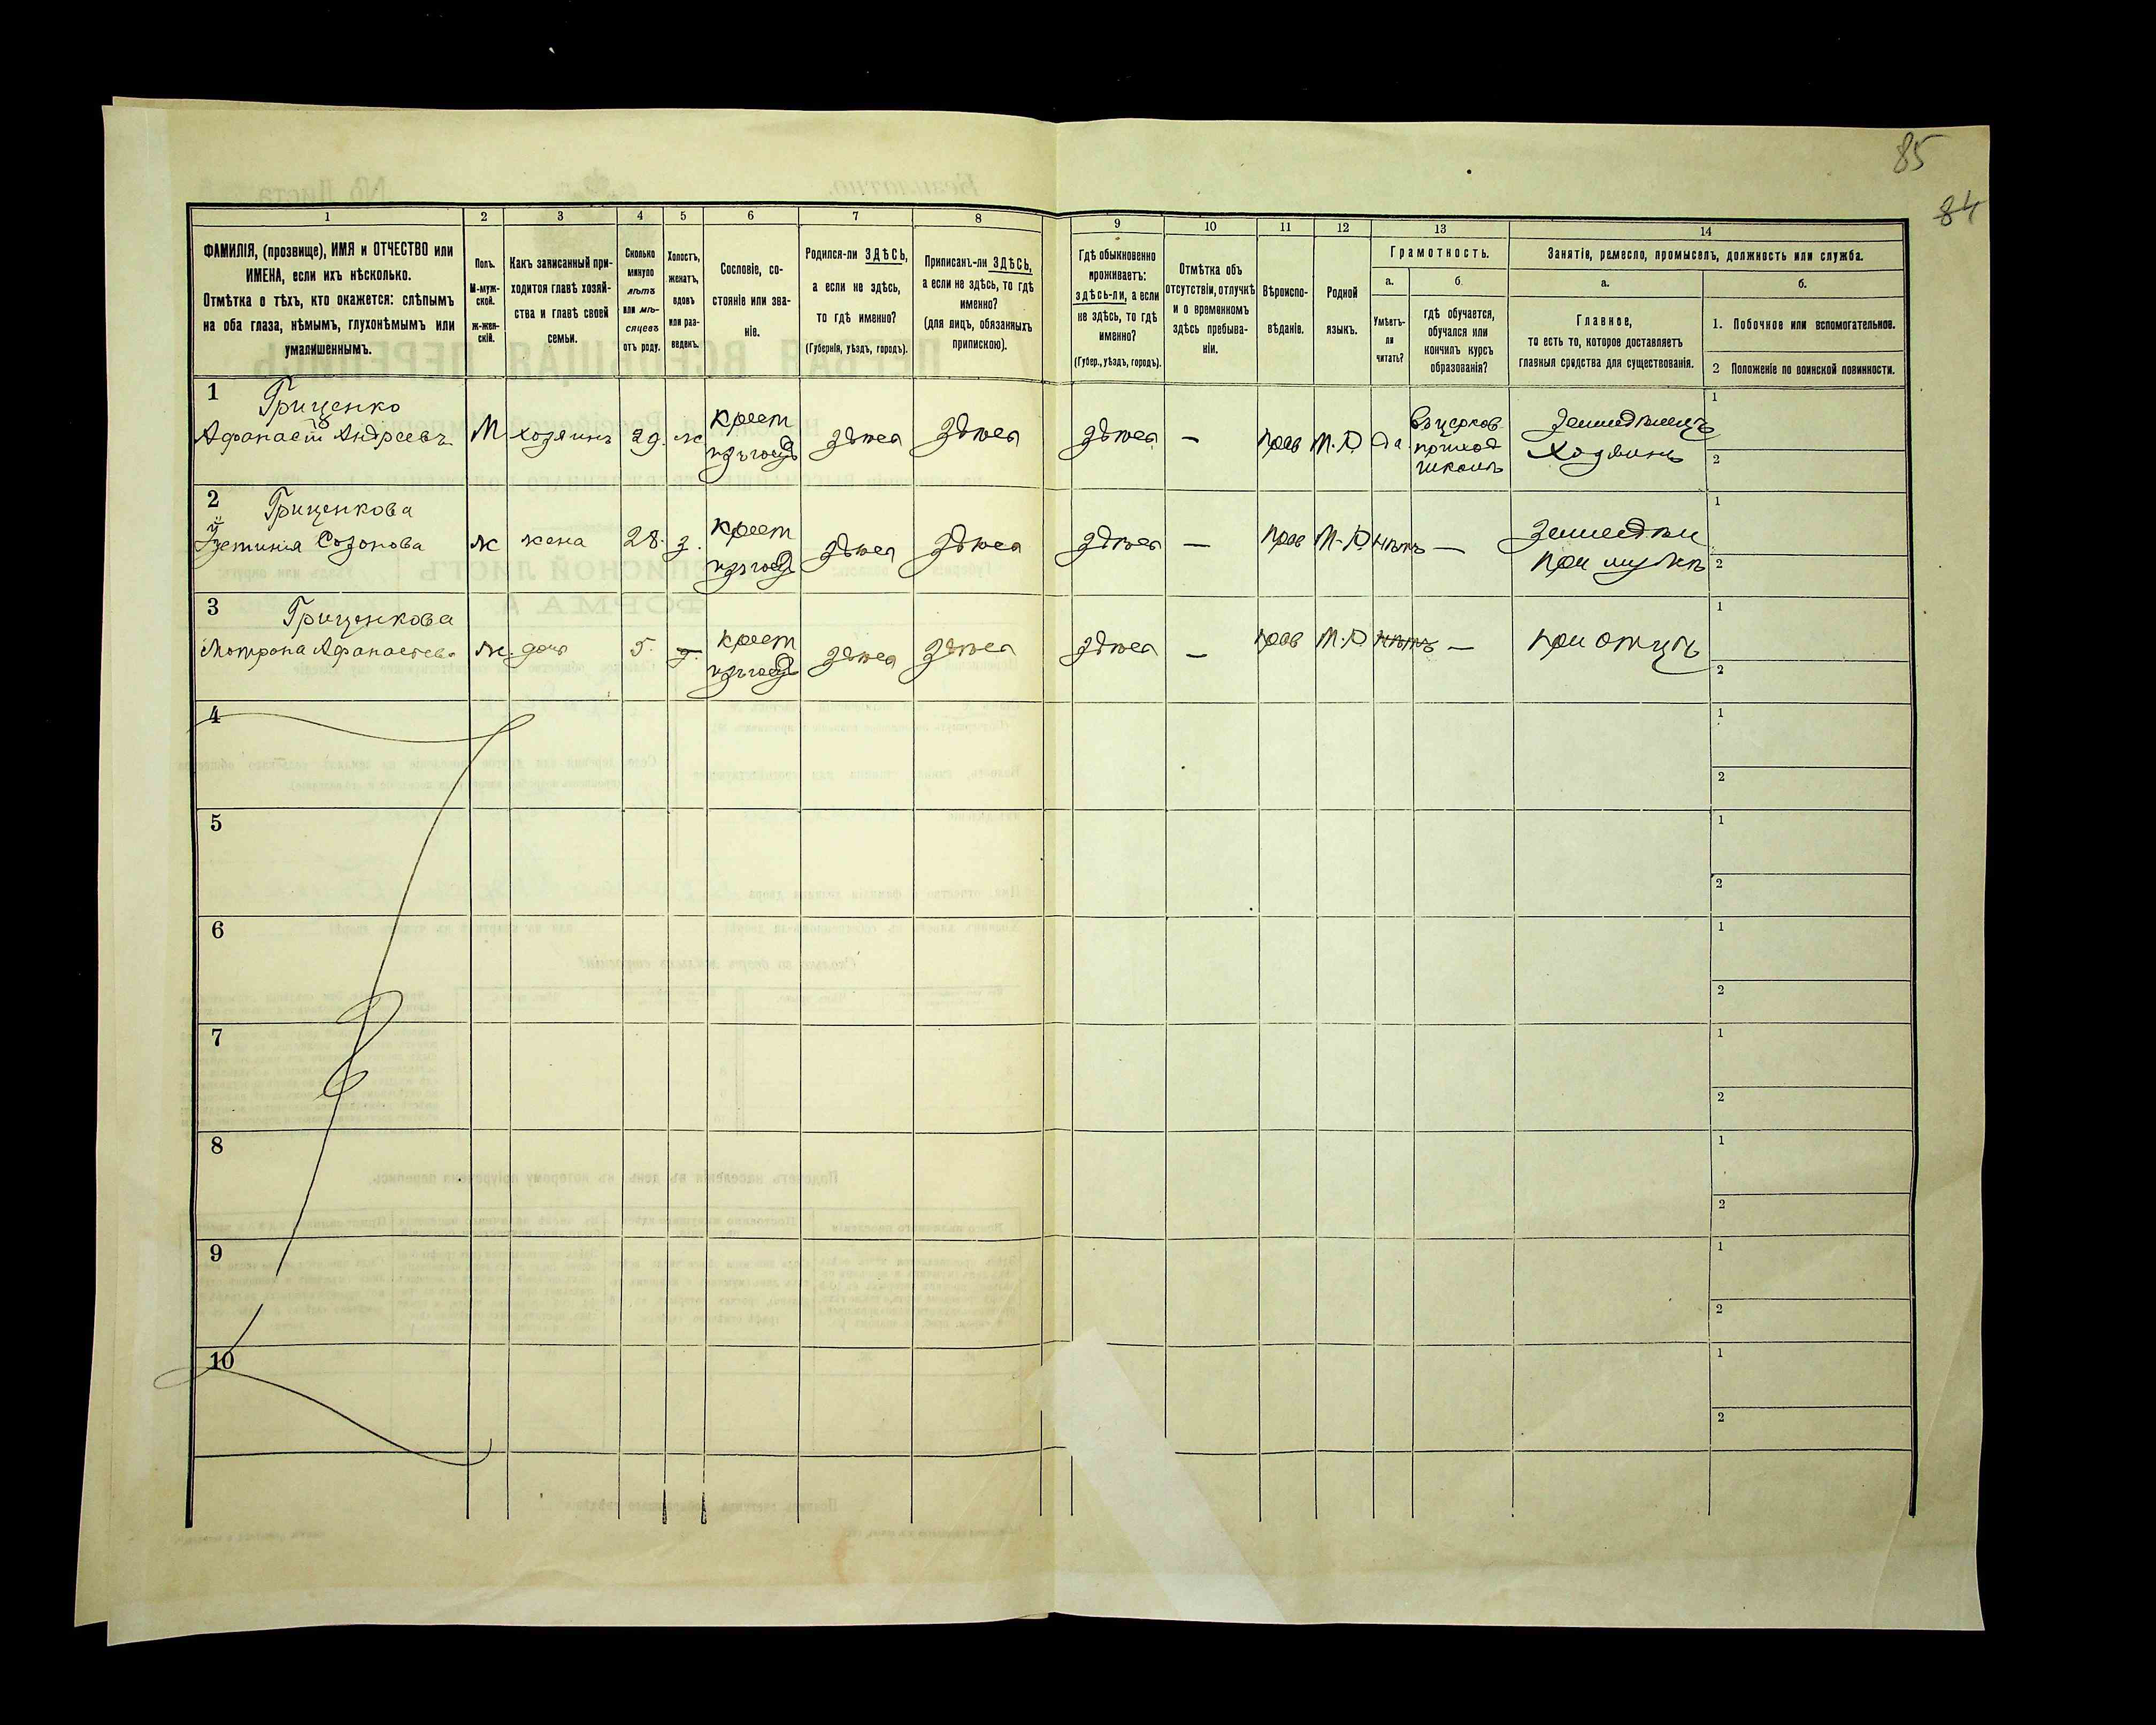 85
84
1
2
3
4
5
6
7
8
9
10
11
12
13
14
ФАМИЛІЯ, (прозвище), ИМЯ и ОТЧЕСТВО или
ИМЕНА, если ихъ нѣсколько.
Отмѣтка о тѣхъ, кто окажется: слѣпымъ
на оба глаза, нѣмымъ, глухонѣмымъ или
умалишеннымъ.
Полъ.
М-муж-
ской.
ж-жен-
скій.
Какъ записанный при-
ходится главѣ хозяй-
ства и главѣ своей
семьи.
Сколько
минуло
лѣтъ
или мѣ-
сяцевъ
отъ роду.
Холостъ,
женатъ,
вдовъ
или раз-
веденъ.
Сословіе, со-
стояніе или зва-
ніе.
Родился-ли ЗДѢСЬ,
а если не здѣсь,
то гдѣ именно?
(Губернія, уѣздъ, городъ).
Приписанъ-ли ЗДѢСЬ,
а если не здѣсь, то гдѣ
именно?
(для лицъ, обязанныхъ
припискою).
Гдѣ обыкновенно
проживаетъ:
здѣсь-ли, а если
не здѣсь, то гдѣ
именно?
(Губер., уѣздъ, городъ).
Отмѣтка объ
отсутствіи, отлучкѣ
и о временномъ
здѣсь пребыва-
ніи.
Вѣроиспо-
вѣданіе.
Родной
языкъ.
Грамотность.
а.
Умѣетъ-
ли
читать?
б.
гдѣ обучается,
обучался или
кончилъ курсъ
образованія?
Занятіе, ремесло, промыселъ, должность или служба.
а.
Главное,
то есть то, которое доставляетъ
главныя средства для существованія.
б.
1. Побочное или вспомогательное.
2 Положеніе по воинской повинности.
1
Гриценко
Афанасій Андреевъ
М
хозяинъ
29.
ж
крест
изъ госуд
здѣсь
здѣсь
здѣсь
—
прав
М.Р.
да.
Въ церков
приход
школѣ
Земледѣлецъ
Хозяинъ
1
2
2
Гриценкова
Устинія Созонова
ж
жена
28.
з.
крест
изъ госуд
здѣсь
здѣсь
здѣсь
—
прав
М.Р.
нѣтъ
—
Земледѣл
при мужѣ
1
2
3
Гриценкова
Мотрона Афанасіева
ж.
дочь
5.
крест
изъ госуд
здѣсь
здѣсь
здѣсь
—
прав
М.Р.
нѣтъ
—
при отцѣ
1
2
4
1
2
5
1
2
6
1
2
7
1
2
8
1
2
9
1
2
10
1
2